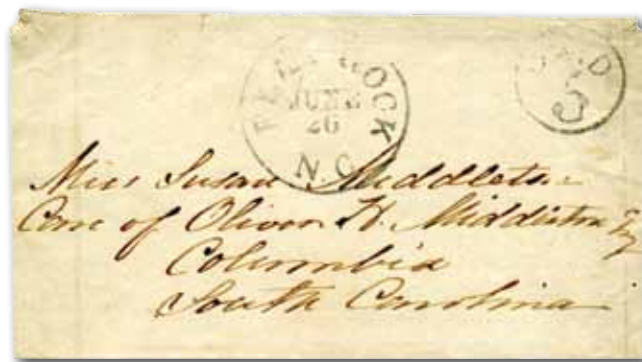 FLAT ROCK
JUNE
26
N.C.
PAID
5
Miss Susan Middleton
Care of Oliver H. Middleton Esq
Columbia
South Carolina